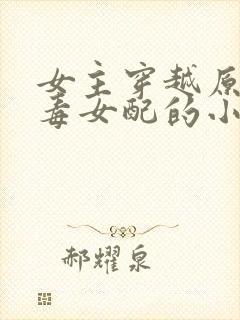 女主穿越原
毒女配的小
郝耀泉